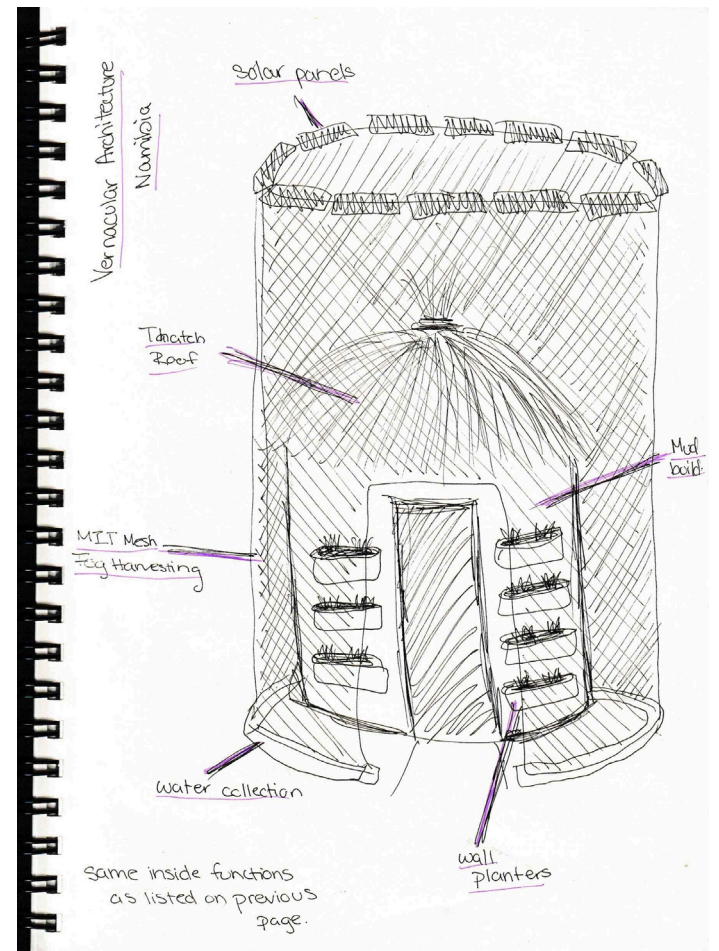 Vernacular Architecture
Namibia
Solar panels
Thatch
Roof
Mud
build.
MIT Mesh
Fog Harvesting
water collection
wall
planters
same inside functions
as listed on previous
page.